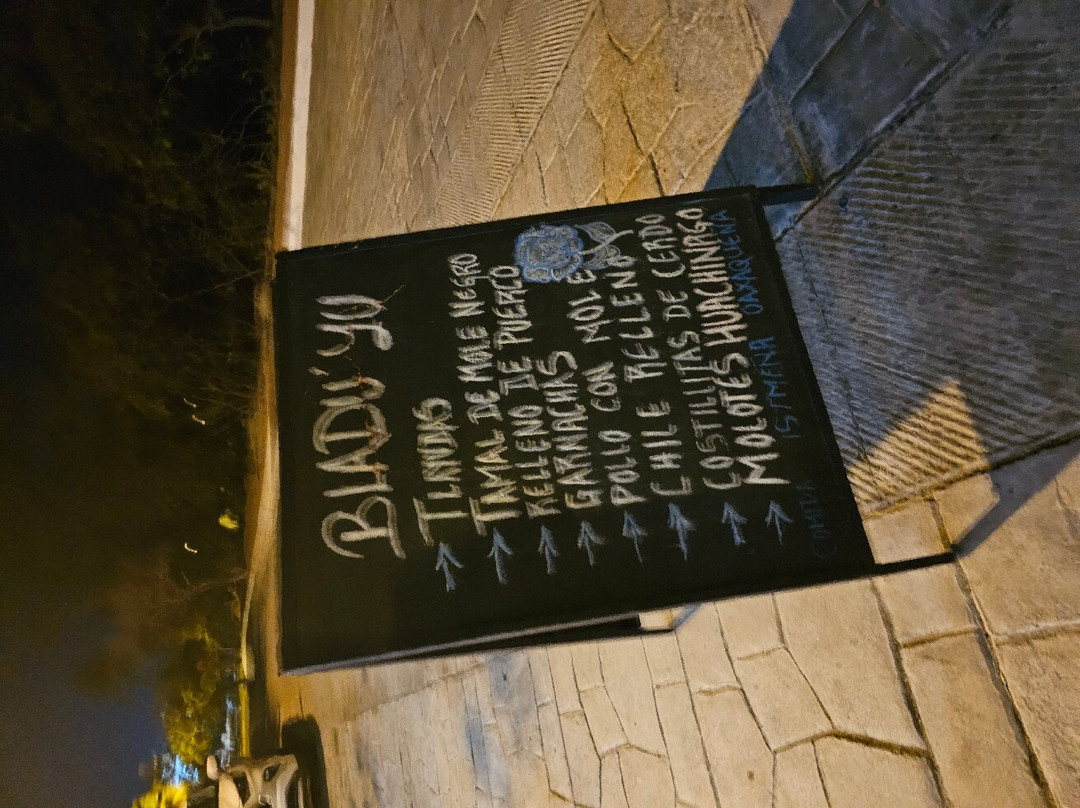 BIADU' YÚ
TLAYUDAS
TAMAL DE MOLE NEGRO
RELLENO DE PUERCO
GARNACHAS
POLLO CON MOLE
CHILE RELLENO
COSTILLITAS DE CERDO
MOLOTES HUACHINAGO
COMIDA ISTMEÑA OAXAQUEÑA